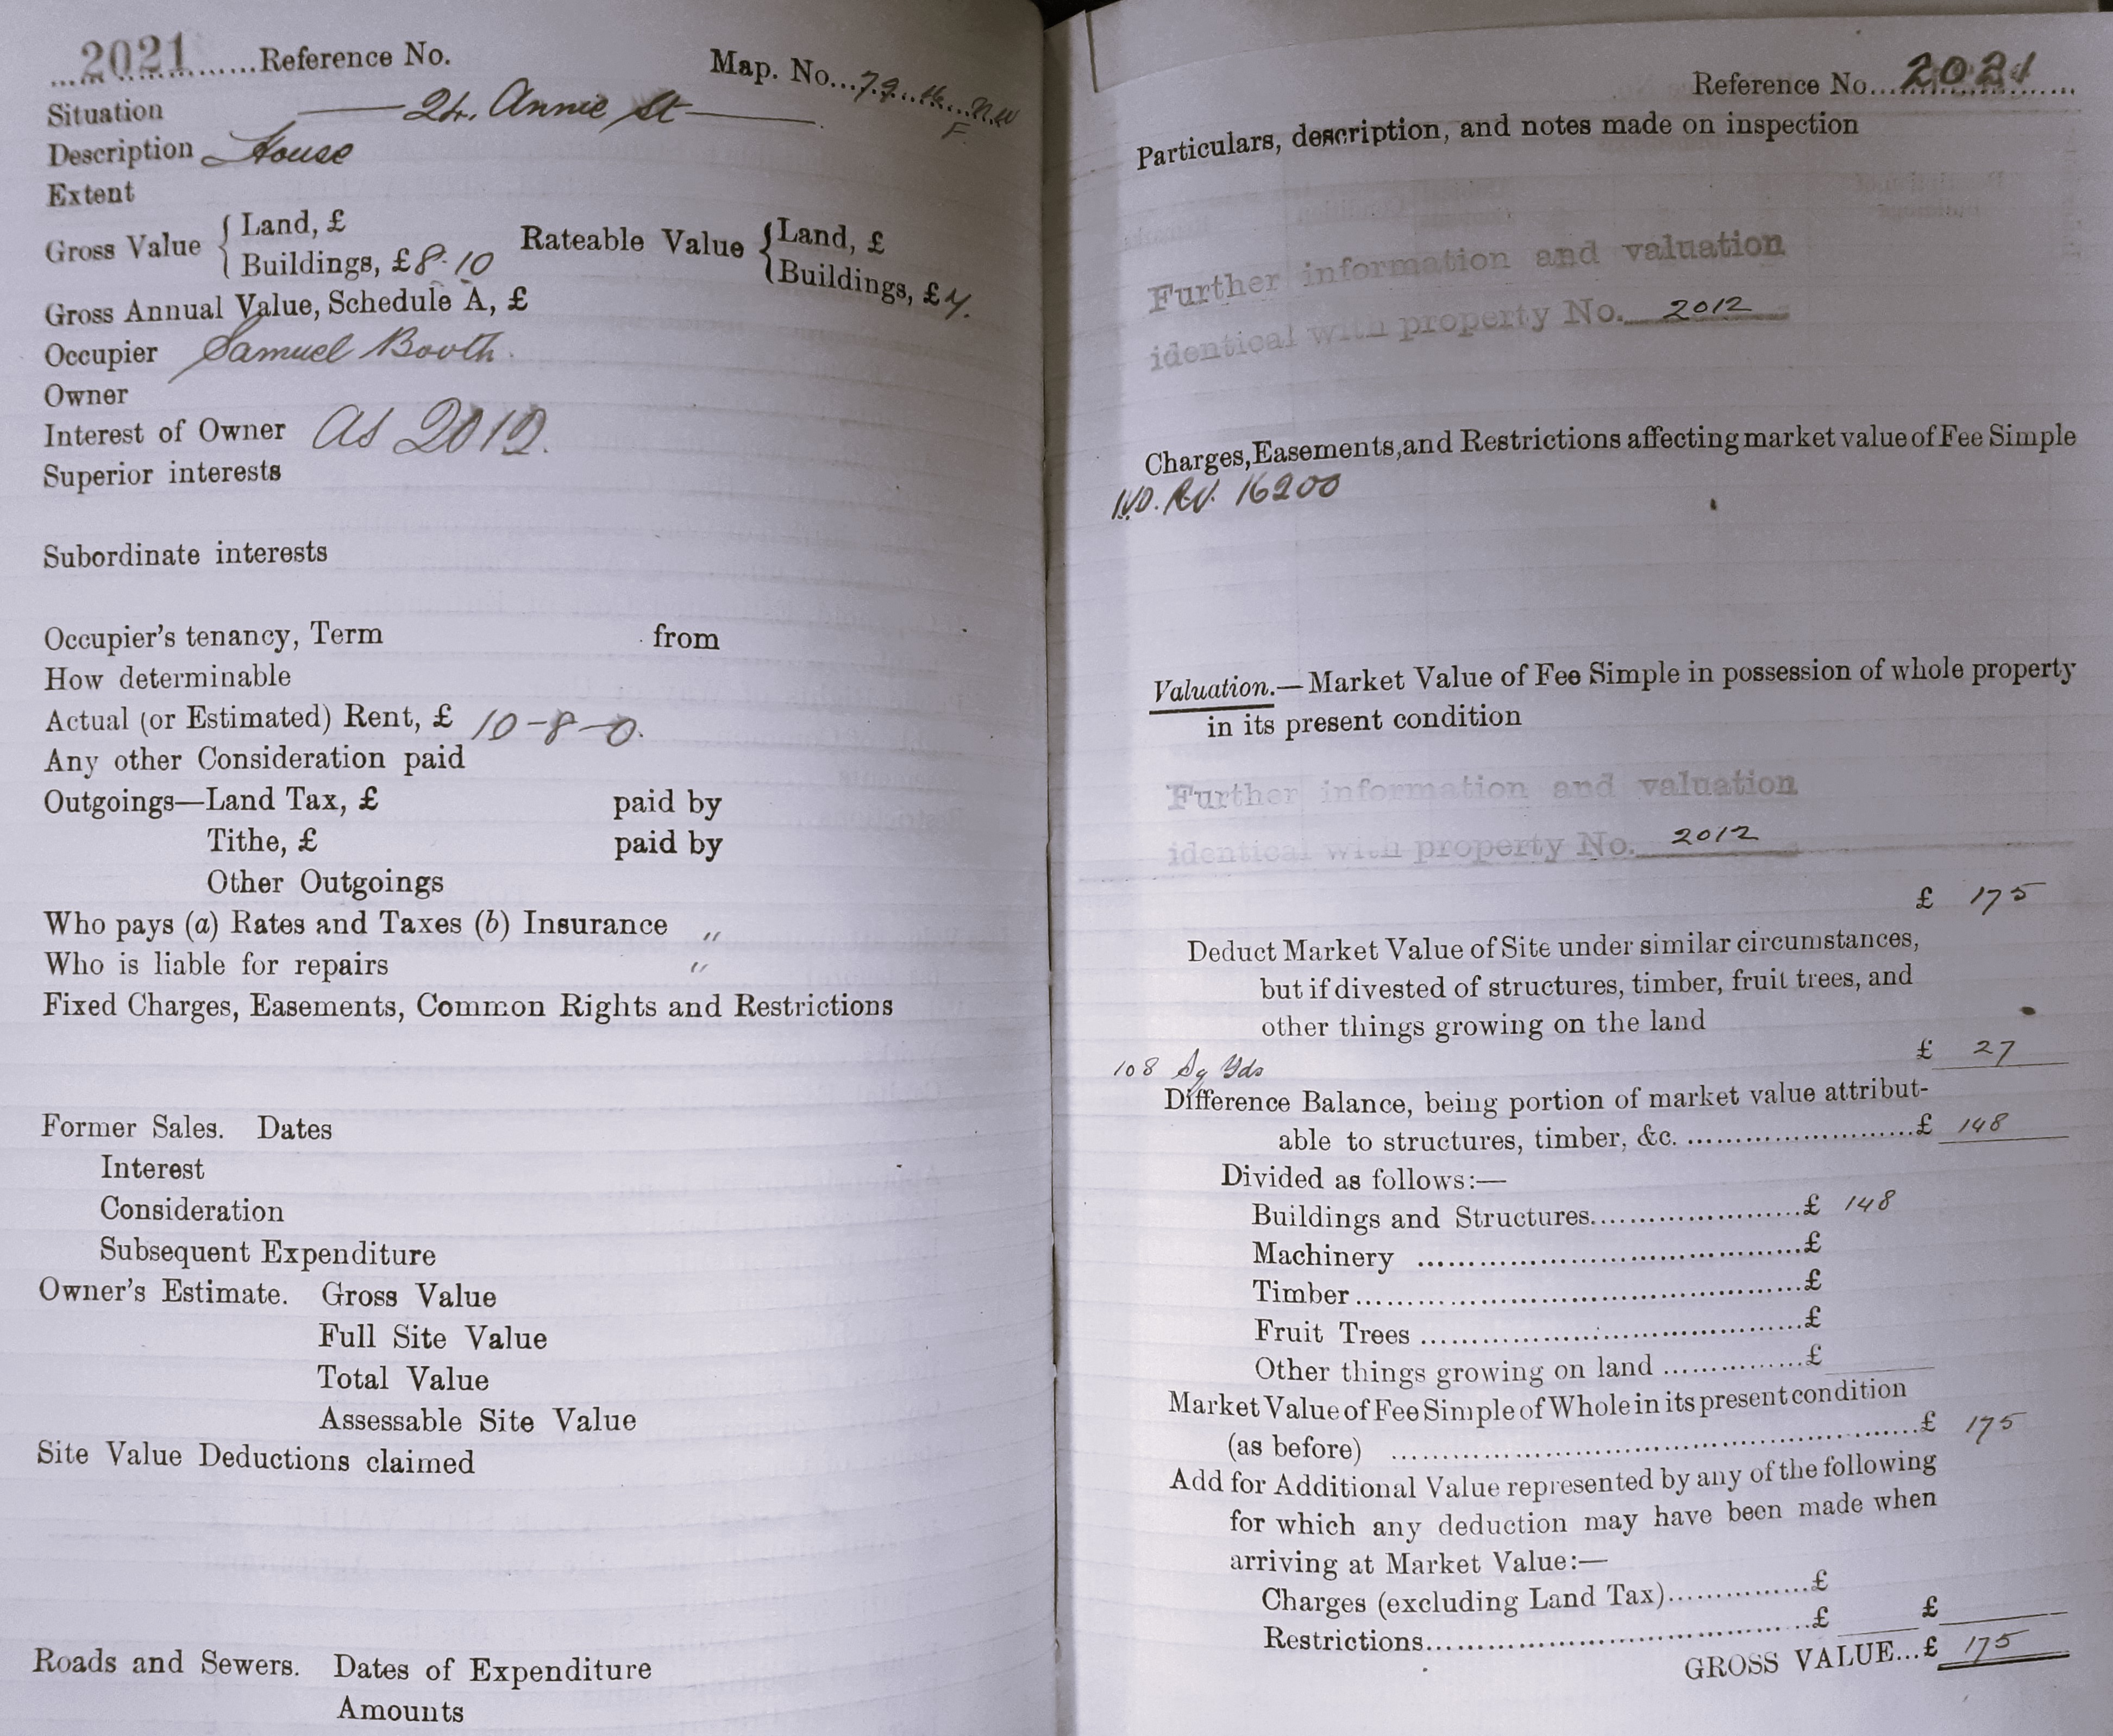 2021 Reference No. Map. No. 79.16.N.W
F.
Situation 24, Annie St
Description House
Extent
Gross Value { Land, £ Rateable Value { Land, £
Buildings, £ 8.10 Buildings, £ 7.
Gross Annual Value, Schedule A, £
Occupier Samuel Booth.
Owner
Interest of Owner as 2012.
Superior interests
Subordinate interests
Occupier's tenancy, Term from
How determinable
Actual (or Estimated) Rent, £ 10-8-0.
Any other Consideration paid
Outgoings—Land Tax, £ paid by
Tithe, £ paid by
Other Outgoings
Who pays (a) Rates and Taxes (b) Insurance "
Who is liable for repairs "
Fixed Charges, Easements, Common Rights and Restrictions
Former Sales. Dates
Interest
Consideration
Subsequent Expenditure
Owner's Estimate. Gross Value
Full Site Value
Total Value
Assessable Site Value
Site Value Deductions claimed
Roads and Sewers. Dates of Expenditure
Amounts
Reference No. 2021
Particulars, description, and notes made on inspection
Further information and valuation
identical with property No. 2012
Charges, Easements, and Restrictions affecting market value of Fee Simple
16200
Valuation.—Market Value of Fee Simple in possession of whole property
in its present condition
Further information and valuation
identical with property No. 2012
£ 175
Deduct Market Value of Site under similar circumstances,
but if divested of structures, timber, fruit trees, and
other things growing on the land
£ 27
108 Sq Yds
Difference Balance, being portion of market value attribut-
able to structures, timber, &c. £ 148
Divided as follows:—
Buildings and Structures £ 148
Machinery £
Timber £
Fruit Trees £
Other things growing on land £
Market Value of Fee Simple of Whole in its present condition
(as before) £ 175
Add for Additional Value represented by any of the following
for which any deduction may have been made when
arriving at Market Value:—
Charges (excluding Land Tax) £
Restrictions £ £
GROSS VALUE...£ 175